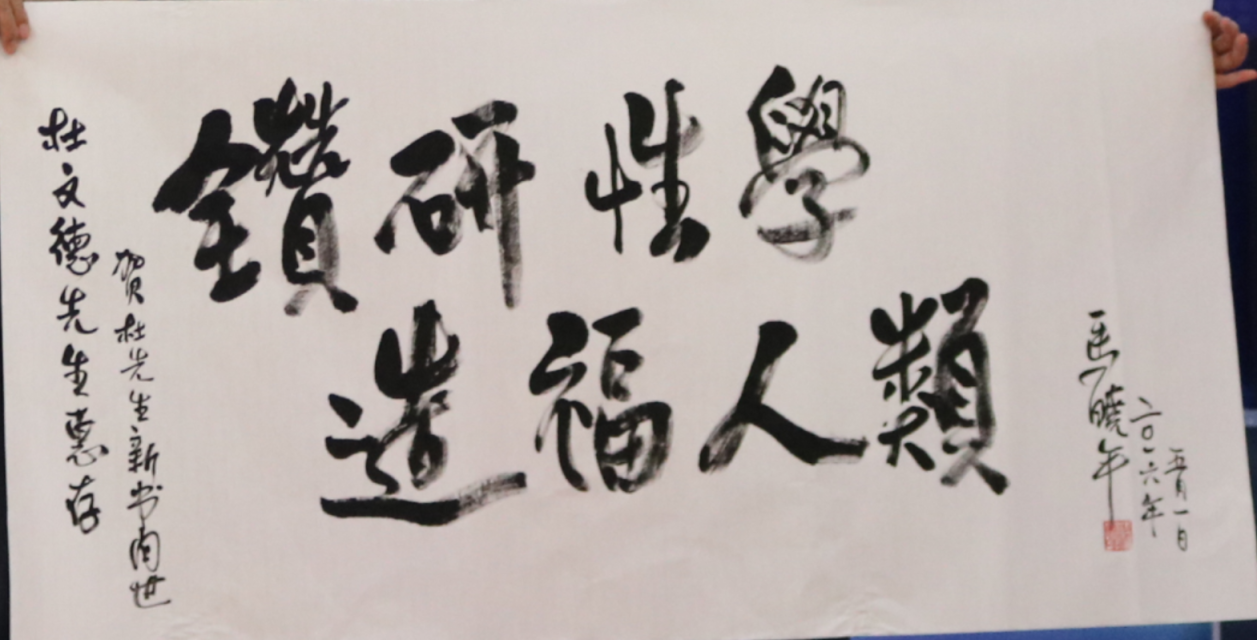 杜文德先生惠存
贺杜先生新书问世
鑽研性學
造福人類
馬曉年
二〇一六年
五月一日